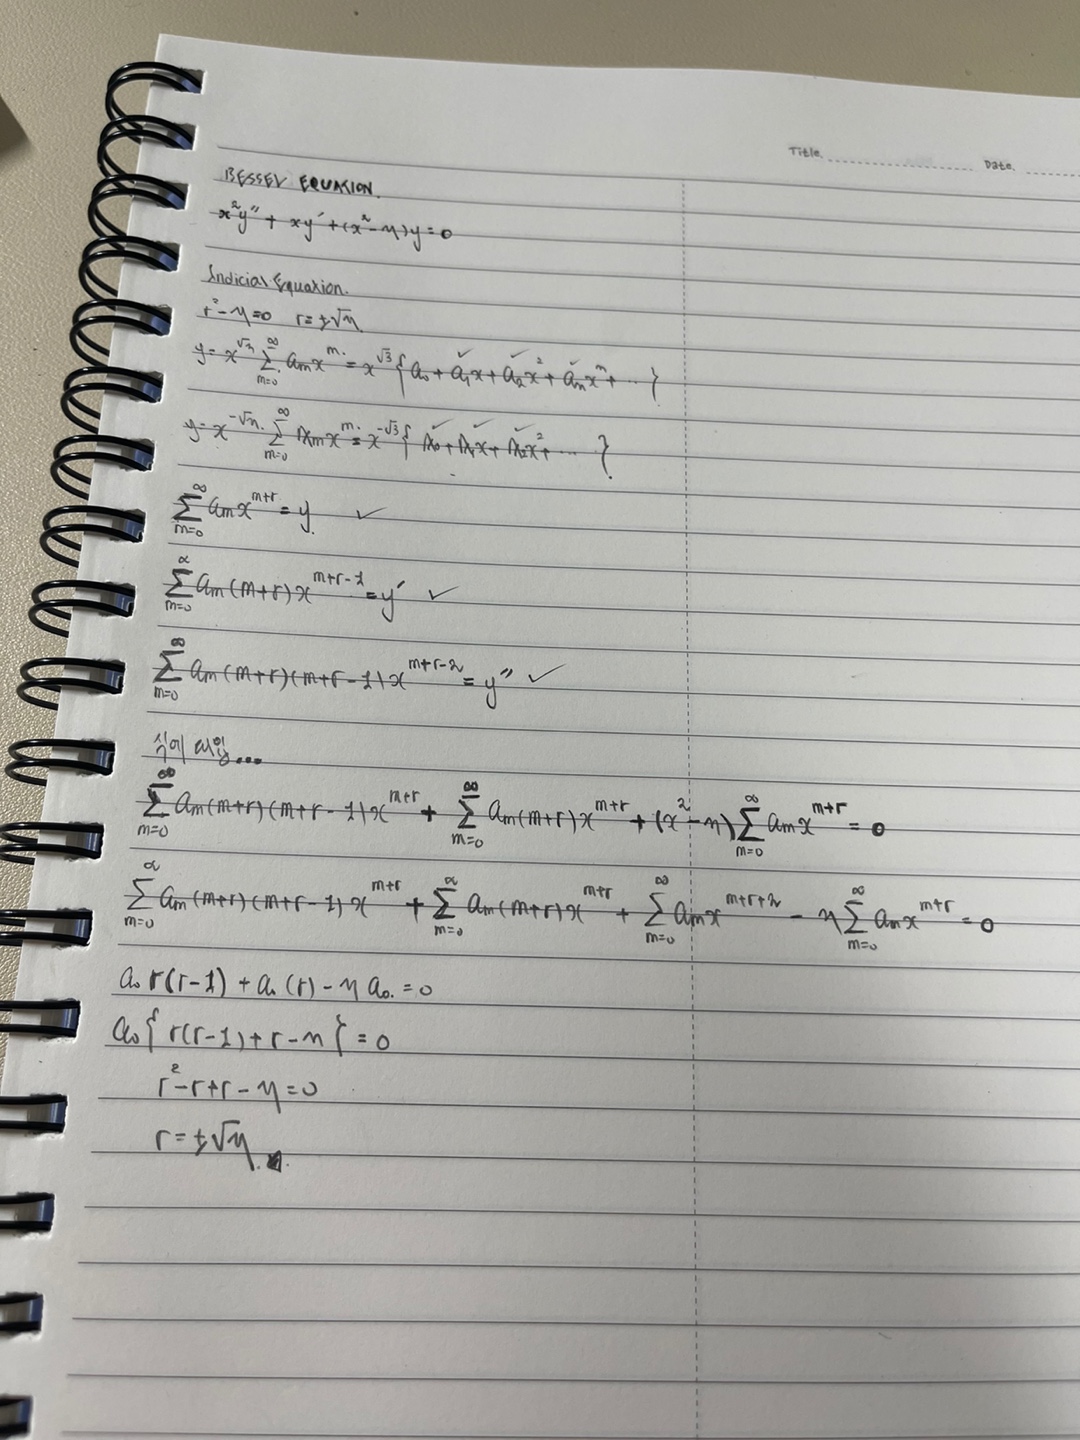 Title.
Date.
BESSEL EQUATION.
x²y″ + xy′ + (x²-η)y = 0
Indicial Equation.
r²-η=0 r=±√η
y = x^√η ∑_{m=0}^{∞} aₘx^m = x^√3 { a₀ + a₁x + a₂x² + aₘx^m + ⋯ }
y = x^-√η ∑_{m=0}^{∞} Aₘx^m = x^-√3 { A₀ + A₁x + A₂x² + ⋯ }
∑_{m=0}^{∞} aₘx^{m+r} = y ✓
∑_{m=0}^{∞} aₘ(m+r)x^{m+r-1} = y′ ✓
∑_{m=0}^{∞} aₘ(m+r)(m+r-1)x^{m+r-2} = y″ ✓
식에 대입...
∑_{m=0}^{∞} aₘ(m+r)(m+r-1)x^{m+r} + ∑_{m=0}^{∞} aₘ(m+r)x^{m+r} + (x²-η)∑_{m=0}^{∞} aₘx^{m+r} = 0
∑_{m=0}^{∞} aₘ(m+r)(m+r-1)x^{m+r} + ∑_{m=0}^{∞} aₘ(m+r)x^{m+r} + ∑_{m=0}^{∞} aₘx^{m+r+2} - η∑_{m=0}^{∞} aₘx^{m+r} = 0
a₀ r(r-1) + a₀(r) - η a₀. = 0
a₀{ r(r-1)+r-η } = 0
r²-r+r-η=0
r=±√η.